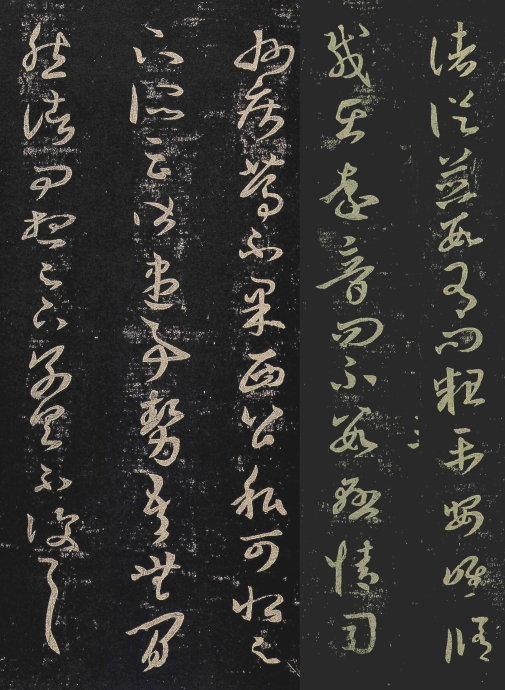 諸從並數有問粗平安唯脩
載在遠音問不數懸情司
州疾篤不果西公私可恨足
下所云皆盡事勢吾無間
然諸問想足下別具不復一一